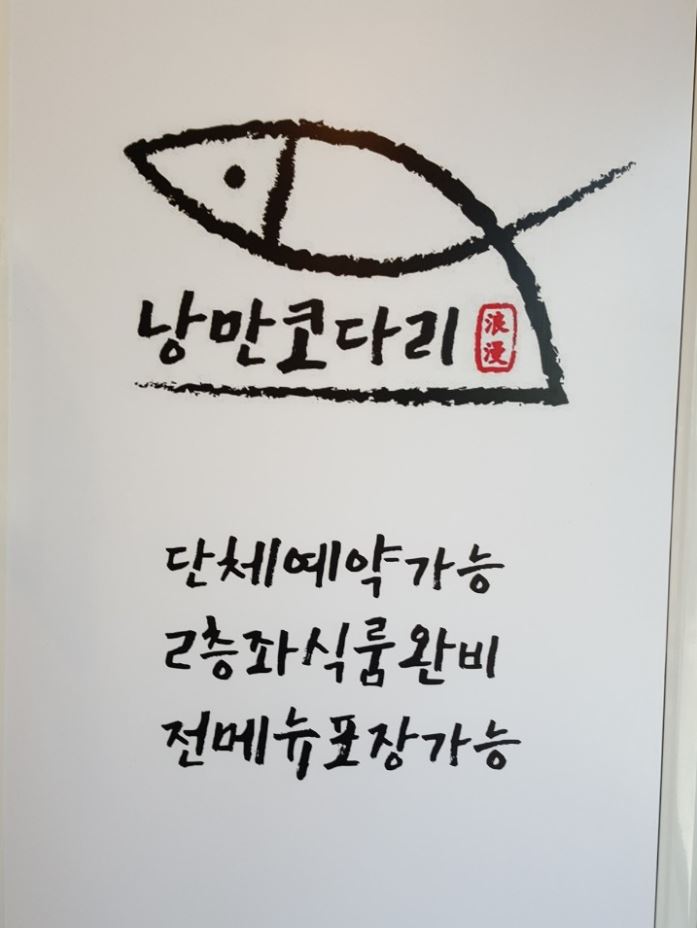 낭만코다리 浪漫
단체예약가능
2층좌식룸완비
전메뉴포장가능